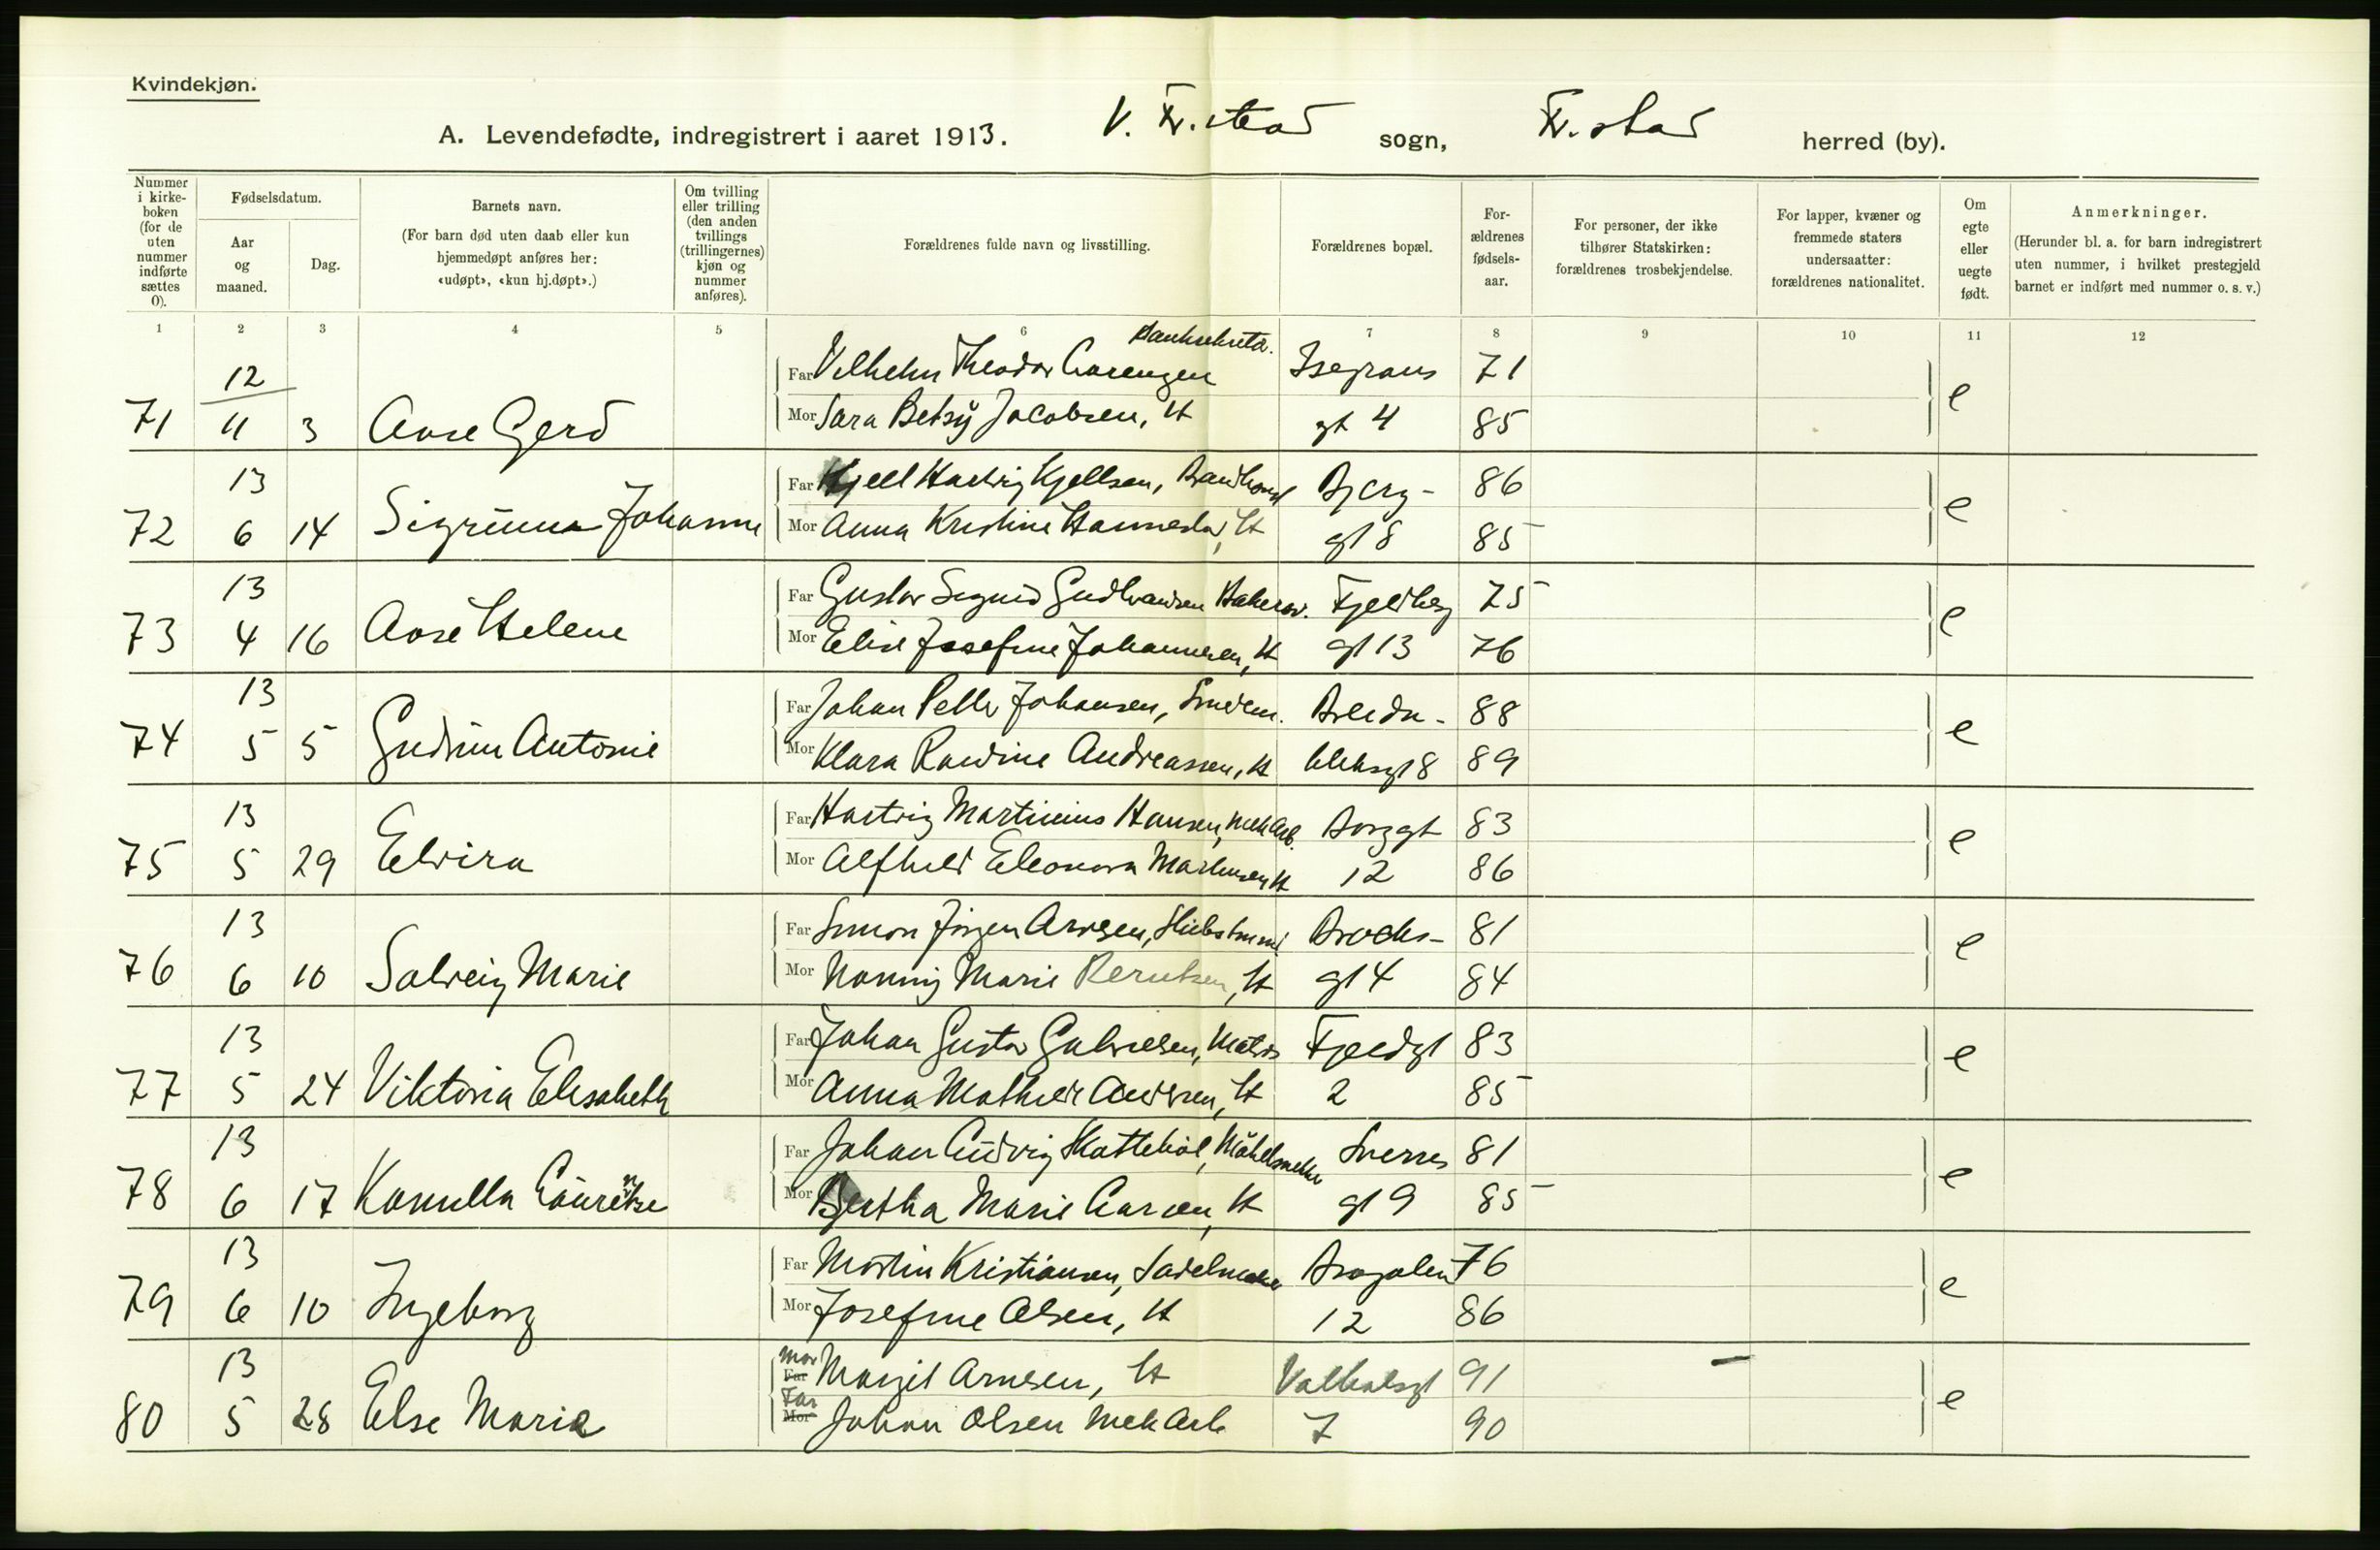 Kvindekjøn.
A. Levendefødte, indregistrert i aaret 1913. V. Fr.stad sogn, Fr.stad herred (by).
Nummer i kirkeboken (for de uten nummer indførte sættes 0).
Fødselsdatum.
Aar og maaned.
Dag.
Barnets navn.
(For barn død uten daab eller kun hjemmedøpt anføres her: «udøpt», «kun hj.døpt».)
Om tvilling eller trilling (den anden tvillings (trillingernes) kjøn og nummer anføres).
Forældrenes fulde navn og livsstilling.
Forældrenes bopæl.
Forældrenes fødselsaar.
For personer, der ikke tilhører Statskirken: forældrenes trosbekjendelse.
For lapper, kvæner og fremmede staters undersaatter: forældrenes nationalitet.
Om egte eller uegte født.
Anmerkninger.
(Herunder bl. a. for barn indregistrert uten nummer, i hvilket prestegjeld barnet er indført med nummer o. s. v.)
1 2 3 4 5 6 7 8 9 10 11 12
12 Far Vilhelm Theodor 71
71 11 3 Aase Gerd Mor Sara Betsy Jacobsen, H gt 4 85 e
13 Far Kjell Hartvig Kjellsen, Bjerg- 86
72 6 14 Johanne Mor Anna Kristine H gt 8 85 e
13 Far Gustav Fjeldberg 75
73 4 16 Aase Helene Mor Elise Josefine Johannesen, H gt 13 76 e
13 Far Johan Petter Johansen, 88
74 5 5 Gudrun Antonie Mor Klara Andreassen, H 89 e
13 Far Hartvig Martinius Hansen, Mek Arb. Borggt 83
75 5 29 Elvira Mor Alfhild Eleonora H 12 86 e
13 Far Simon Jörgen Brochs- 81
76 6 10 Solveig Marie Mor Marie H gt 4 84 e
13 Far Johan Gustav Gabrielsen, Matros Fjeldgt 83
77 5 24 Viktoria Elisabeth Mor Anna Mathilde Andersen, H 2 85 e
13 Far Johan Ludvig Møbelsnekker Sverres 81
78 6 17 Kamilla Laurentse Mor Bertha Marie Larsen, H gt 9 85 e
13 Far Martin Kristiansen, Sadelmaker 76
79 6 10 Ingeborg Mor Josefine Olsen, H 12 86 e
13 Mor Far Margit Arnesen, H Valhalsgt 91 –
80 5 28 Else Marie Far Mor Johan Olsen Mek Arb 7 90 e